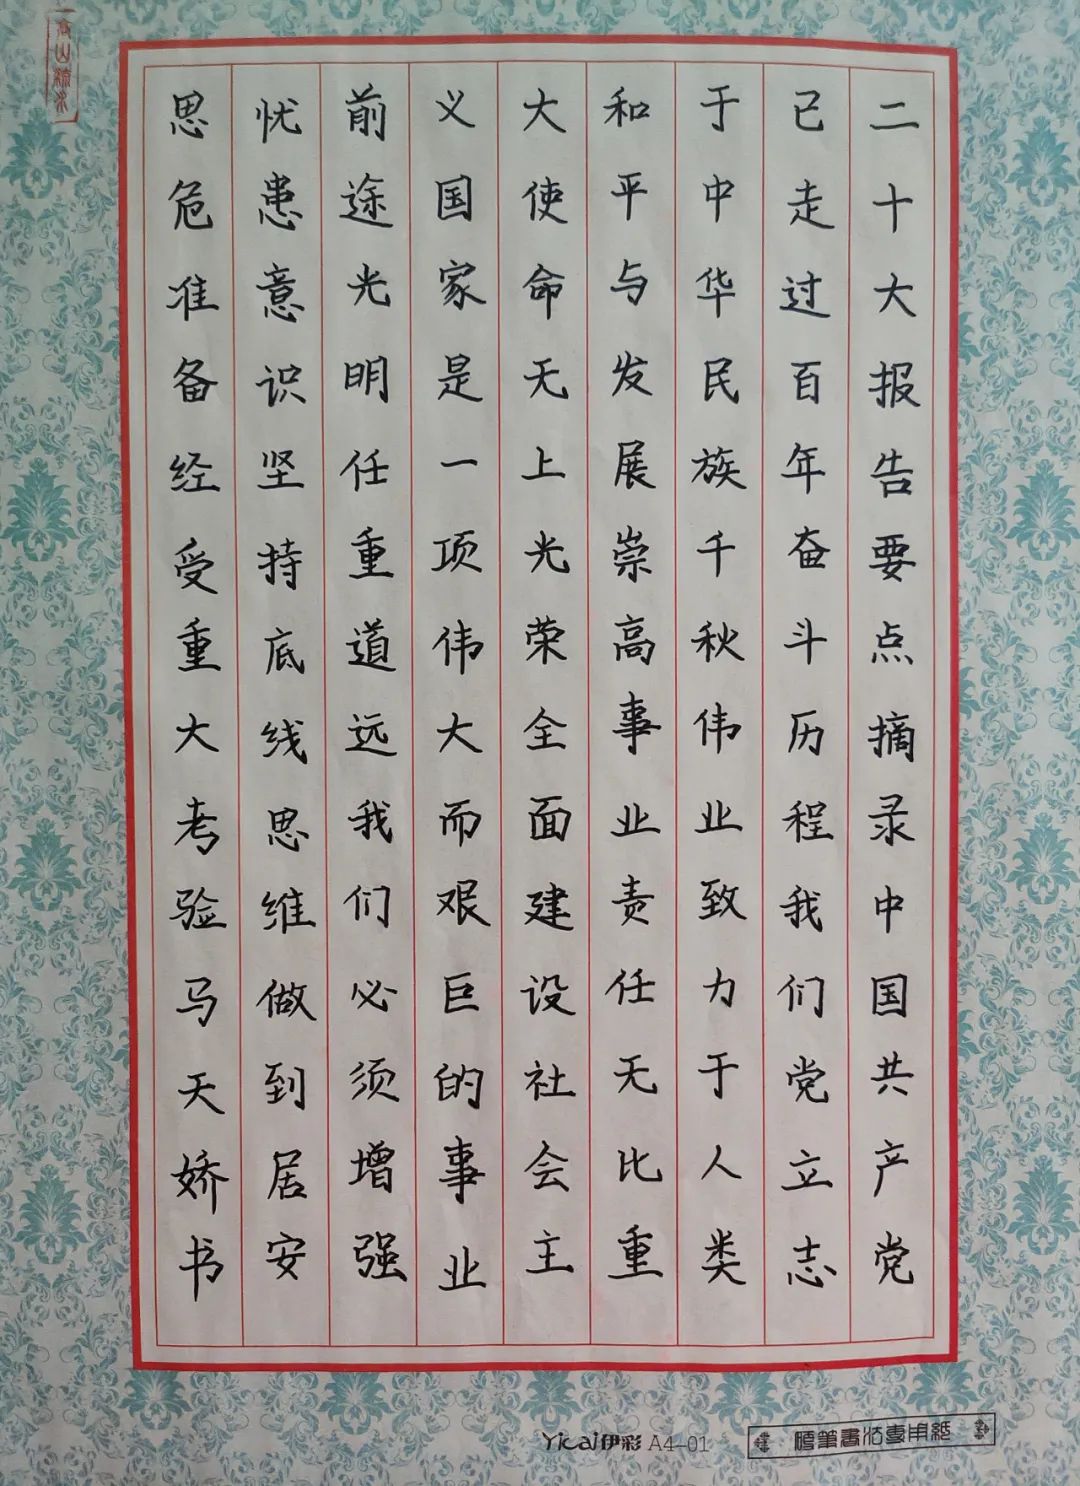 二十大报告要点摘录中国共产党
已走过百年奋斗历程我们党立志
于中华民族千秋伟业致力于人类
和平与发展崇高事业责任无比重
大使命无上光荣全面建设社会主
义国家是一项伟大而艰巨的事业
前途光明任重道远我们必须增强
忧患意识坚持底线思维做到居安
思危准备经受重大考验马天娇书
高山流水
Yicai伊彩 A4-01
硬筆書法專用紙